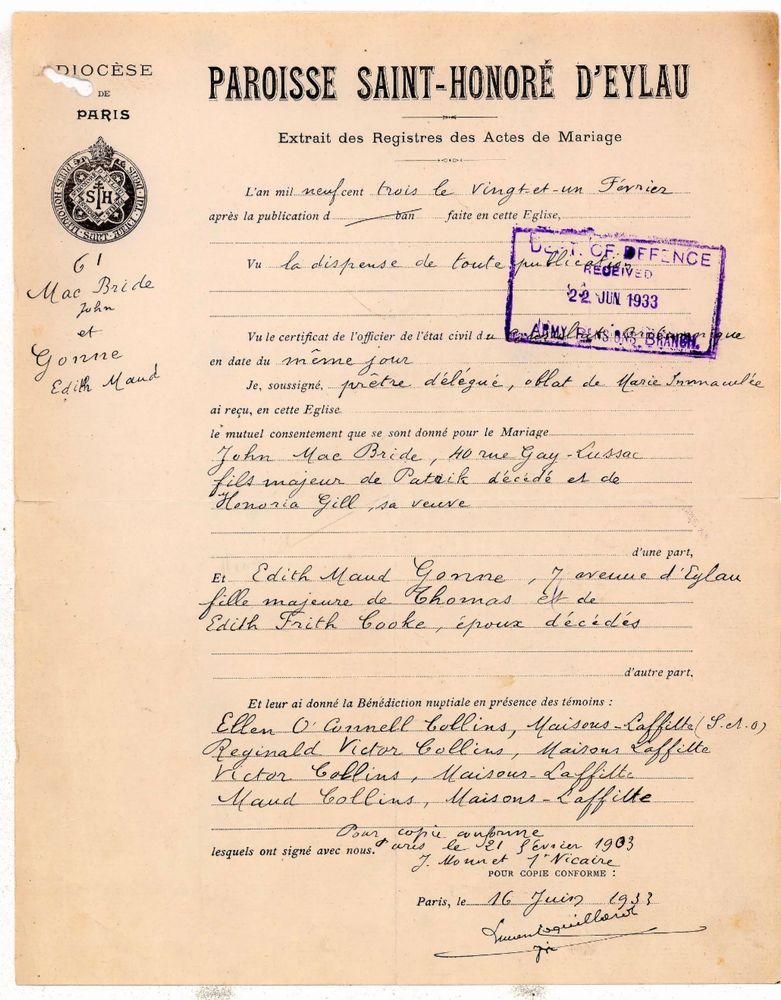 DIOCÈSE
DE
PARIS
PAROISSE SAINT-HONORÉ D'EYLAU
Extrait des Registres des Actes de Mariage
SH
61
Mac Bride
John
et
Gonne
Edith Maud
L'an mil neuf cent trois le vingt-et-un Février
après la publication d ban faite en cette Eglise,
Vu la dispense de toute publication
DEPT. OF DEFENCE
RECEIVED
22 JUN 1933
ARMY PENSIONS BRANCH.
Vu le certificat de l'officier de l'état civil du consulat britannique
en date du même jour
Je, soussigné, prêtre délégué, oblat de Marie Immaculée
ai reçu, en cette Eglise
le mutuel consentement que se sont donné pour le Mariage
John Mac Bride, 40 rue Gay-Lussac
fils majeur de Patrik décédé et de
Honoria Gill, sa veuve
d'une part,
Et Edith Maud Gonne, 7 avenue d'Eylau
fille majeure de Thomas et de
Edith Frith Cooke, époux décédés
d'autre part,
Et leur ai donné la Bénédiction nuptiale en présence des témoins :
Ellen O'Connell Collins, Maisons-Laffitte (S.&.O)
Reginald Victor Collins, Maisons Laffitte
Victor Collins, Maisons-Laffitte
Maud Collins, Maisons-Laffitte
Pour copie conforme
lesquels ont signé avec nous. Paris le 21 février 1903
J. Monnet 1er Vicaire
POUR COPIE CONFORME :
Paris, le 16 Juin 1933